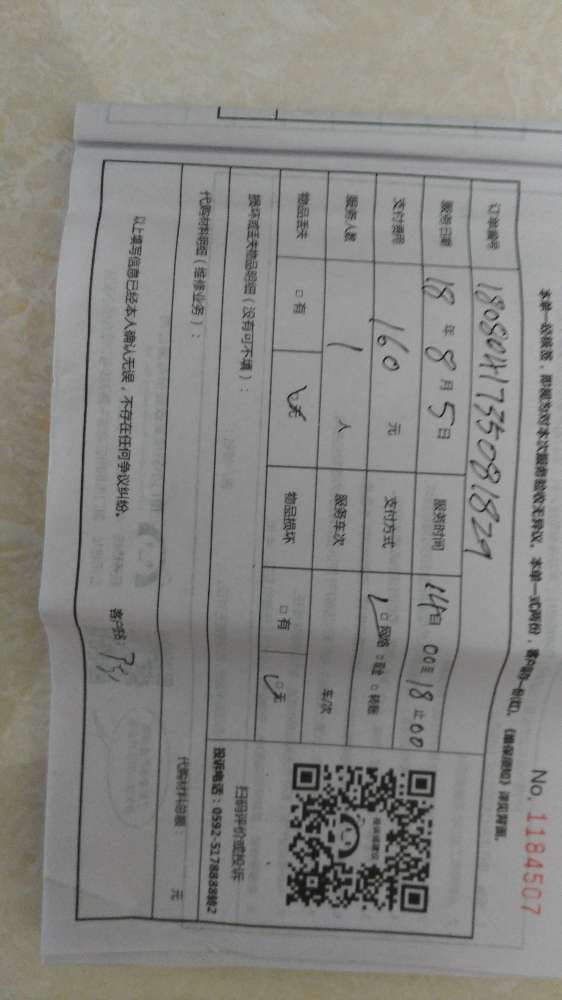 No. 1184507
本单一经核签，即视为对本次服务验收无异议。本单一式两份，客户留一份(红)。《维保须知》详见背面。
订单编号 18080417355081829
服务日期 18 年 8 月 5 日 服务时间 14 自 00 至 18 止 00
支付费用 160 元 支付方式 □ 网络 □ 现金 □ 转账
服务人数 1 人 服务车次 车次
物品丢失 □ 有 □ 无 物品损坏 □ 有 □ 无
损坏或丢失物品明细（没有可不填）：
扫码评价或投诉
投诉电话：0592-5178888转2
代购材料明细（维修业务）：
代购材料总额： 元
以上填写信息已经本人确认无误，不存在任何争议纠纷。
客户签名：